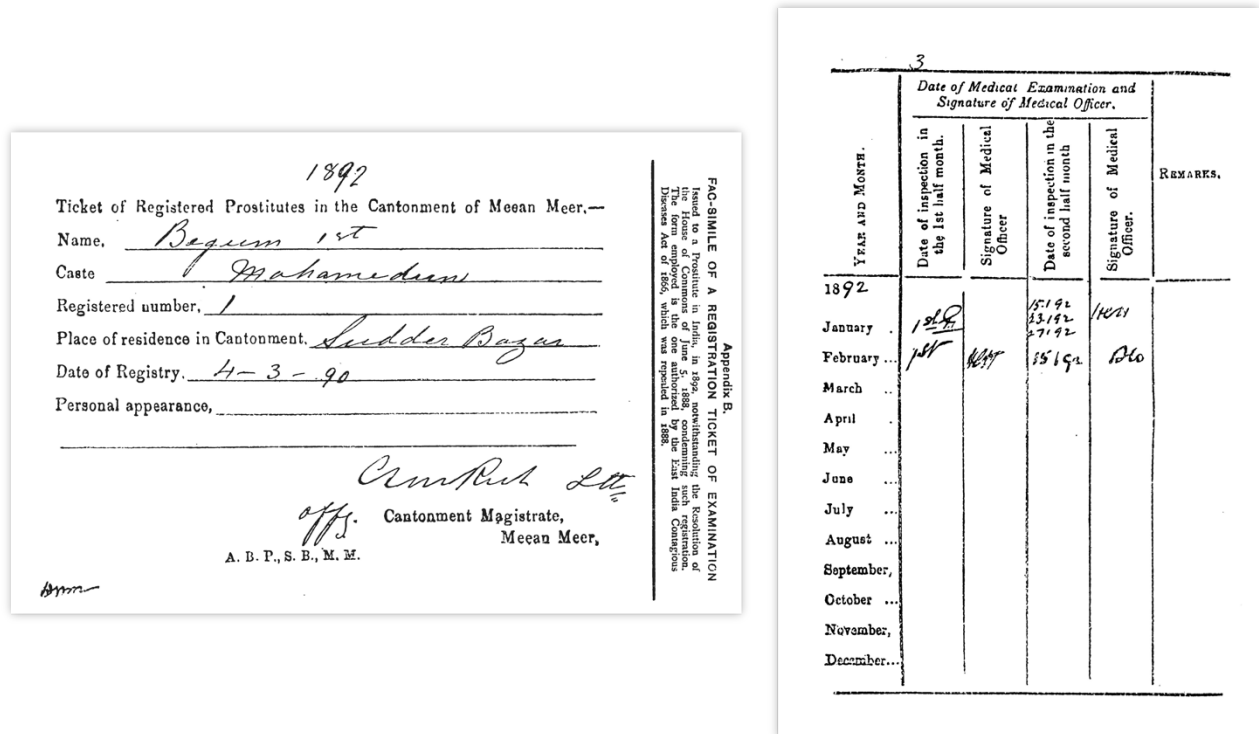 1892
Ticket of Registered Prostitutes in the Cantonment of Meean Meer.—
Name, Begum 1st
Caste Mahamedun
Registered number, 1
Place of residence in Cantonment, Sudder Bazar
Date of Registry. 4-3-90
Personal appearance,
Ltt
offg. Cantonment Magistrate,
Meean Meer,
A. B. P., S. B., M. M.
Appendix B.
FAC-SIMILE OF A REGISTRATION TICKET OF EXAMINATION
Issued to a Prostitute in India, in 1892, notwithstanding the Resolution of
the House of Commons of June 5, 1888, condemning such registration.
The form employed is the one authorized by the East India Contagious
Diseases Act of 1866, which was repealed in 1888.
3
YEAR AND MONTH.
Date of Medical Examination and
Signature of Medical Officer.
Date of inspection in
the 1st half month.
Signature of Medical
Officer
Date of inspection in the
second half month
Signature of Medical
Officer.
REMARKS.
1892
15.1.92
January . 1st 23.1.92
27.1.92
February ... 1st
March ..
April .
May ...
June ...
July ...
August ...
September,
October ...
November,
December...